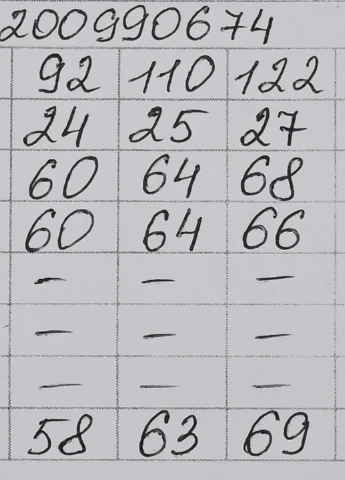 200990674
92 110 122
24 25 27
60 64 68
60 64 66
— — —
— — —
— — —
58 63 69